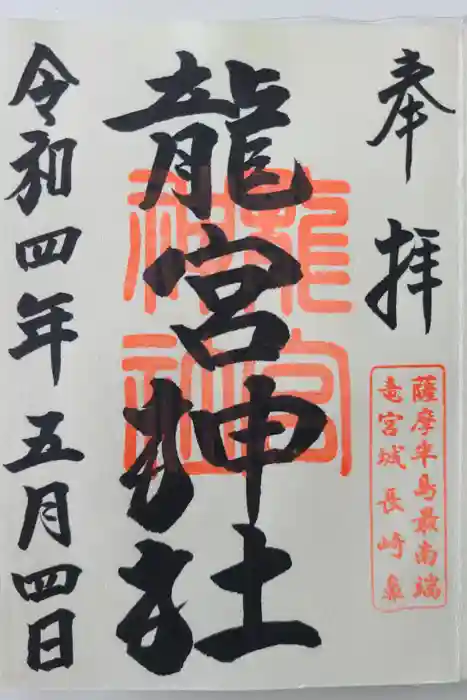 奉拝
薩摩半島最南端
竜宮城 長崎鼻
龍宮神社
龍宮
神社
令和四年 五月四日